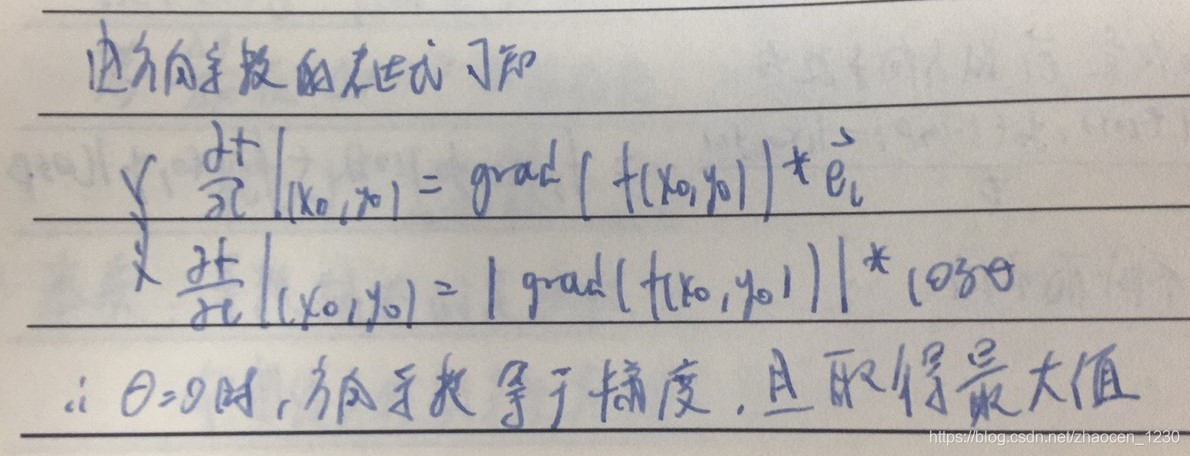 由方向导数的表达式可知
∵ ∂f/∂l|(x₀,y₀) = grad(f(x₀,y₀))*e⃗ₗ
∴ ∂f/∂l|(x₀,y₀) = |grad(f(x₀,y₀))|*cosθ
∴ θ=0时,方向导数等于梯度,且取得最大值
https://blog.csdn.net/zhaocen_1230